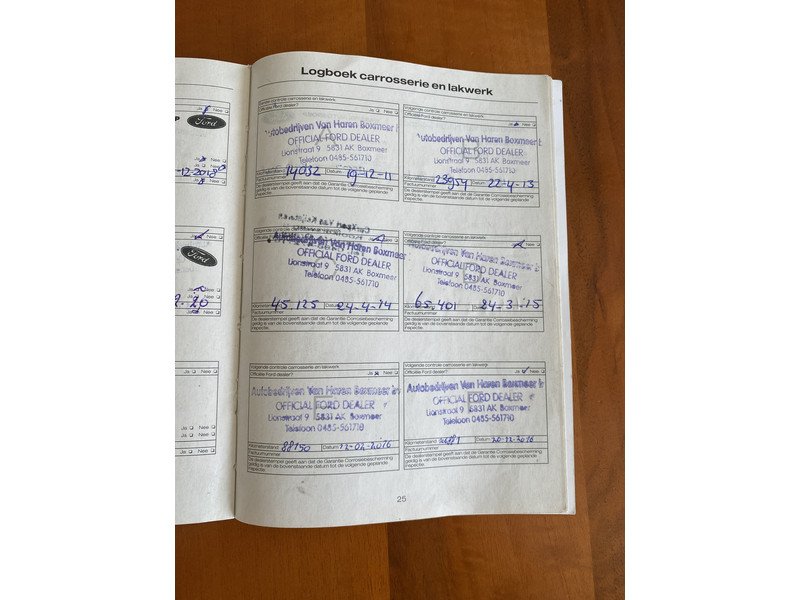 Logboek carrosserie en lakwerk
Volgende controle carrosserie en lakwerk
Officiële Ford dealer?
Autobedrijven Van Haren Boxmeer
OFFICIAL FORD DEALER
Lionstraat 9 5831 AK Boxmeer
Telefoon 0485-561710
14032 Datum 19-12-11
Factuurnummer
De dealerstempel geeft aan dat de Garantie Corrosiebescherming
geldig is van de bovenstaande datum tot de volgende geplande
inspectie.
Volgende controle carrosserie en lakwerk
Officiële Ford dealer? Ja Nee
Autobedrijven Van Haren Boxmeer
OFFICIAL FORD DEALER
Lionstraat 9 5831 AK Boxmeer
Telefoon 0485-561710
23954 Datum 22-4-13
Factuurnummer
De dealerstempel geeft aan dat de Garantie Corrosiebescherming
geldig is van de bovenstaande datum tot de volgende geplande
inspectie.
Volgende controle carrosserie en lakwerk
Van Haren Boxmeer
OFFICIAL FORD DEALER
Lionstraat 9 5831 AK Boxmeer
Telefoon 0485-561710
45.125 Datum 24-4-14
Factuurnummer
De dealerstempel geeft aan dat de Garantie Corrosiebescherming
geldig is van de bovenstaande datum tot de volgende geplande
inspectie.
Volgende controle carrosserie en lakwerk
Nee
Autobedrijven Van Haren Boxmeer
OFFICIAL FORD DEALER
Lionstraat 9 5831 AK Boxmeer
Telefoon 0485-561710
65.401 24-3-15
Factuurnummer
De dealerstempel geeft aan dat de Garantie Corrosiebescherming
geldig is van de bovenstaande datum tot de volgende geplande
inspectie.
Volgende controle carrosserie en lakwerk
Officiële Ford dealer? Ja Nee
Autobedrijven Van Haren Boxmeer
OFFICIAL FORD DEALER
Lionstraat 9 5831 AK Boxmeer
Telefoon 0485-561710
Kilometerstand 88150 Datum 12-02-2016
De dealerstempel geeft aan dat de Garantie Corrosiebescherming
geldig is van de bovenstaande datum tot de volgende geplande
inspectie.
Volgende controle carrosserie en lakwerk
Officiële Ford dealer? Ja Nee
Autobedrijven Van Haren Boxmeer
OFFICIAL FORD DEALER
Lionstraat 9 5831 AK Boxmeer
Telefoon 0485-561710
Kilometerstand Datum 20-12-2016
De dealerstempel geeft aan dat de Garantie Corrosiebescherming
geldig is van de bovenstaande datum tot de volgende geplande
inspectie.
25
Ja Nee
Ford
Nee
-12-2018
Nee
Ford
Ja Nee
Ja Nee
Ja Nee